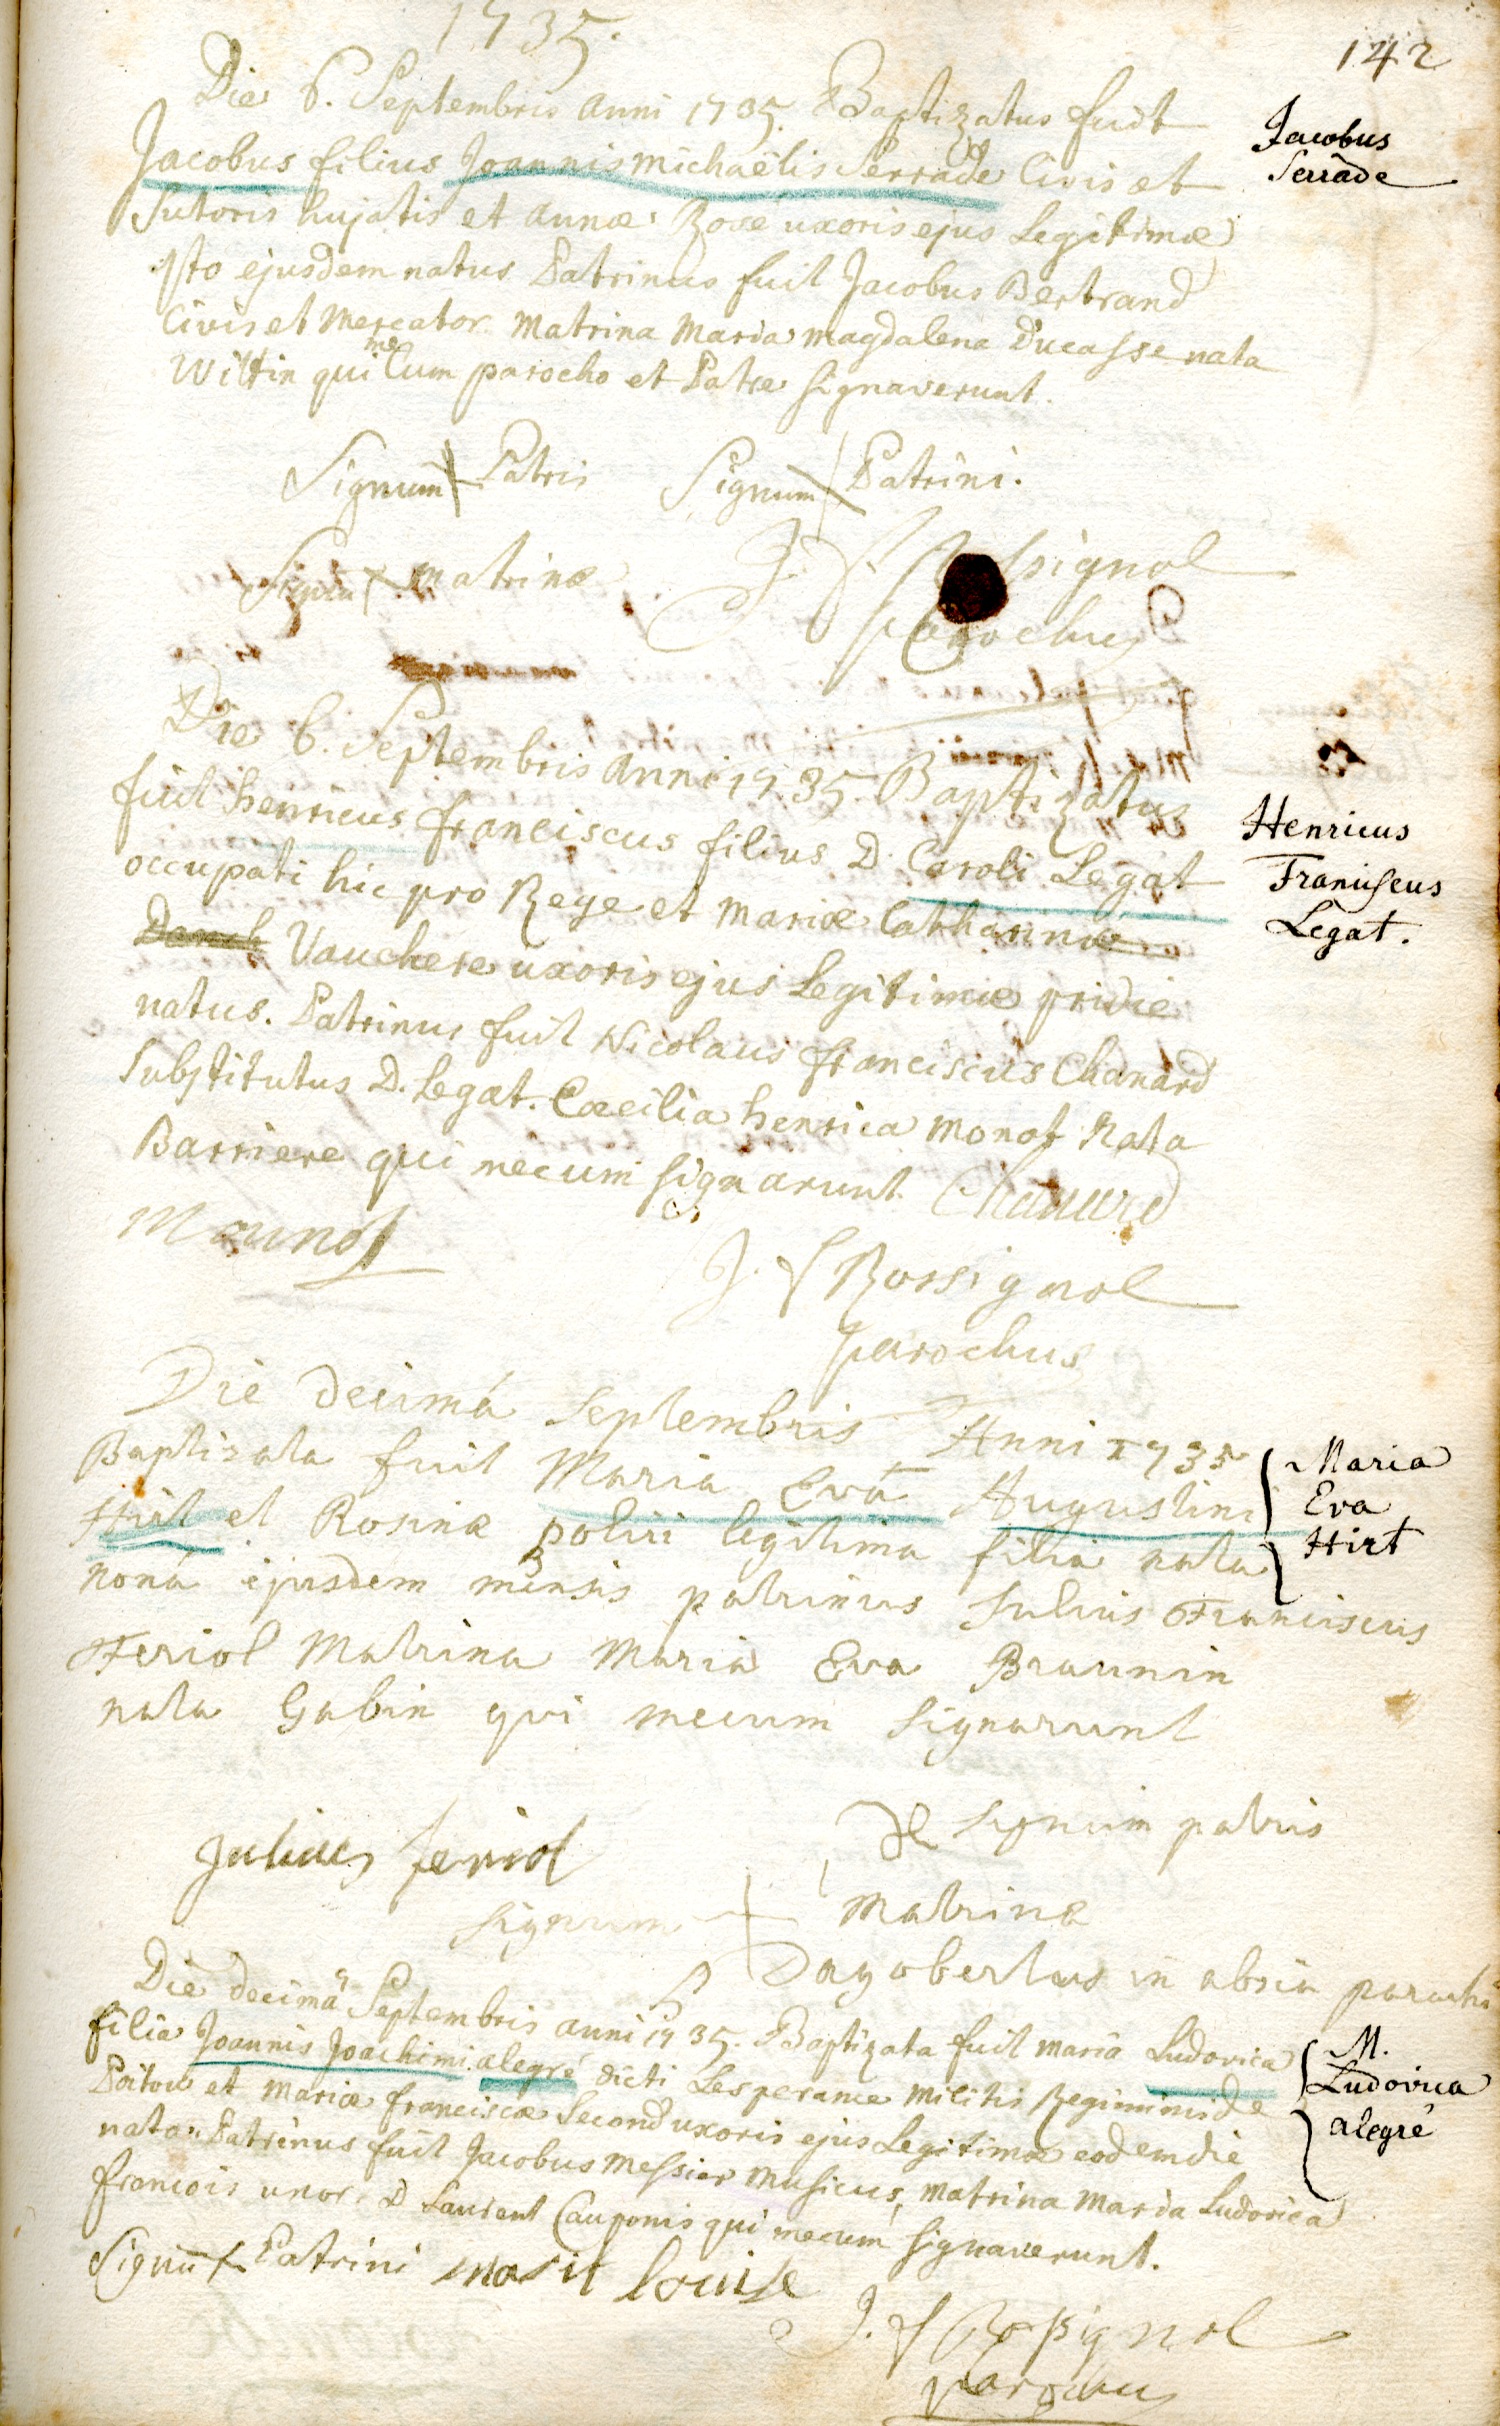 1735.
142
Die 6. Septembris anni 1735. Baptizatus fuit
Jacobus filius Joannis Michaëlis Serrade Civis et
Jacobus
Serrade
Sutoris hujatis et annæ Rose uxoris ejus Legitimæ
ejusdem natus Patrinus fuit Jacobus Bertrand
Civis et Mercator Matrina Maria Magdalena Ducasse nata
Wittin qui me Cum parocho et Patre signaverunt.
Signum Patris Signum Patrini.
Signum matrinæ J. f Rossignol
Parochus
Die 6. Septembris anni 1735. Baptizatus
fuit henricus franciscus filius D. Caroli Legat
Henricus
Franciscus
Legat.
occupati hic pro Rege et Mariæ Catharinæ
Vauchere uxoris ejus Legitimæ pridie
natus. Patrinus fuit Nicolaus franciscus Chanard
Substitutus D. Legat. Cæcilia henrica Monot Nata
Barriere qui mecum signarunt. Chanard
Mounot
J. f Rossignol
parochus
Die decimâ Septembris Anni 1735
Baptizata fuit Maria Eva Augustini
Maria
Eva
Hirt
Hirt et Rosinæ legitima filia nata
nonâ ejusdem mensis patrinus Julius Franciscus
Feriol Matrina Maria Eva Braunin
nata Gabin qui mecum signarunt
signum patris
Julius feriol
signum + Matrinæ
Dagobertus in absentia parochi
Die decimâ Septembris anni 1735. Baptizata fuit maria Ludovica
M.
Ludovica
alegré
filia Joannis Joachimi alegré dicti Lesperance Militis Regiminis de
Poitou et Mariæ franciscæ Second uxoris ejus Legitimæ eodem die
nata. Patrinus fuit Jacobus Messier Musicus, Matrina Maria Ludovica
francois uxor D Laurent Cauponis qui mecum signaverunt.
Signū + Patrini marie louise
J. f Rossignol
parochus